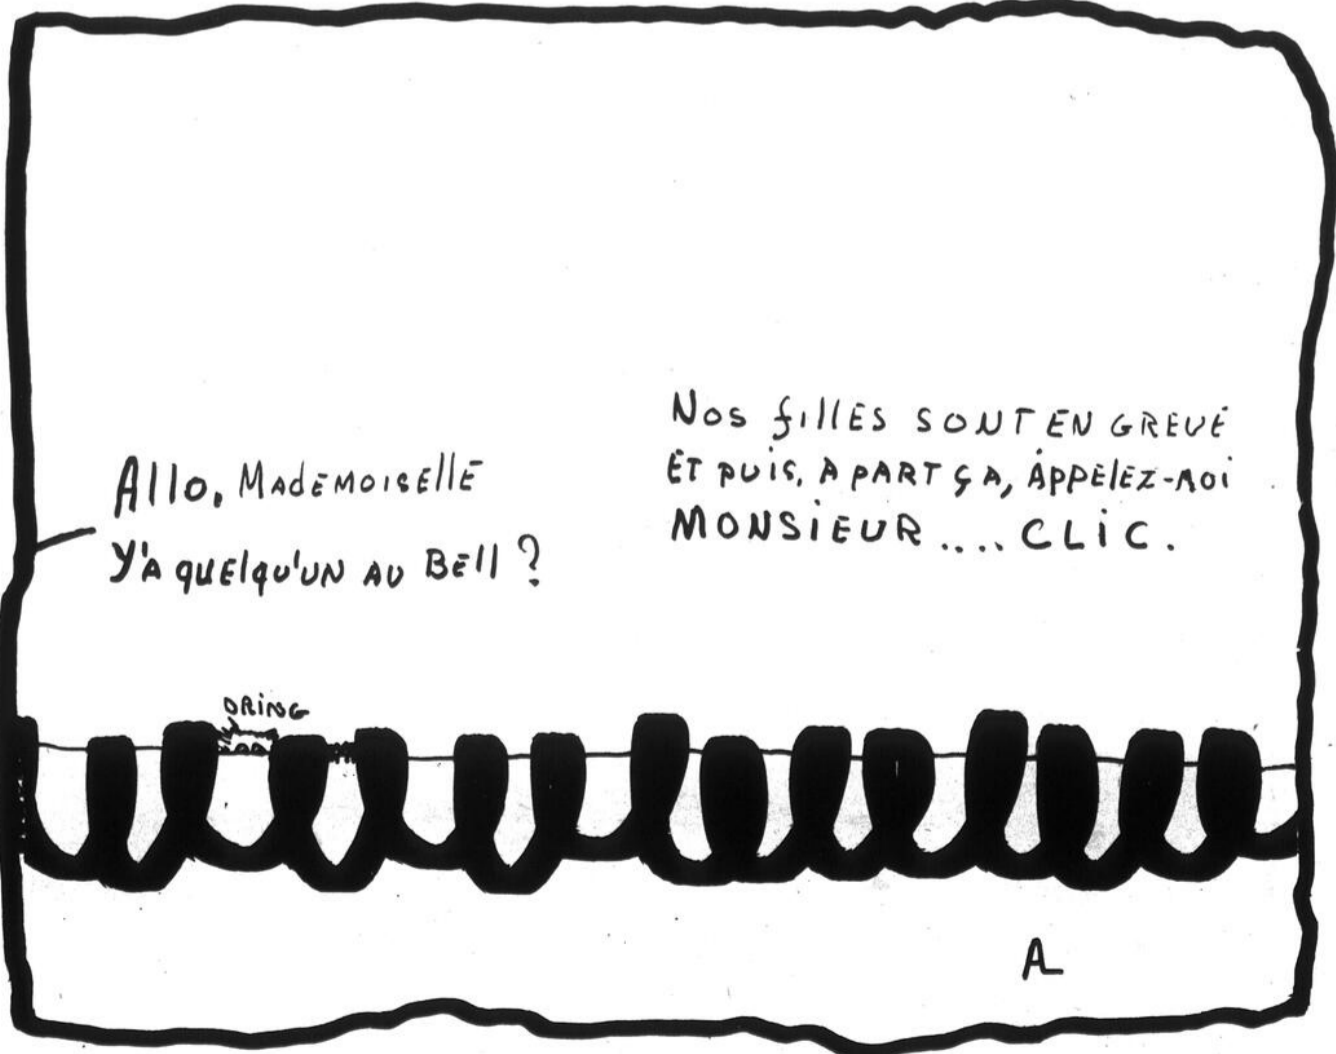 Allo, MADEMOISELLE
Y'A QUELQU'UN AU BELL ?
NOS FILLES SONT EN GREVE
ET PUIS, A PART ÇA, APPELEZ-MOI
MONSIEUR .... CLIC.
DRING
AL